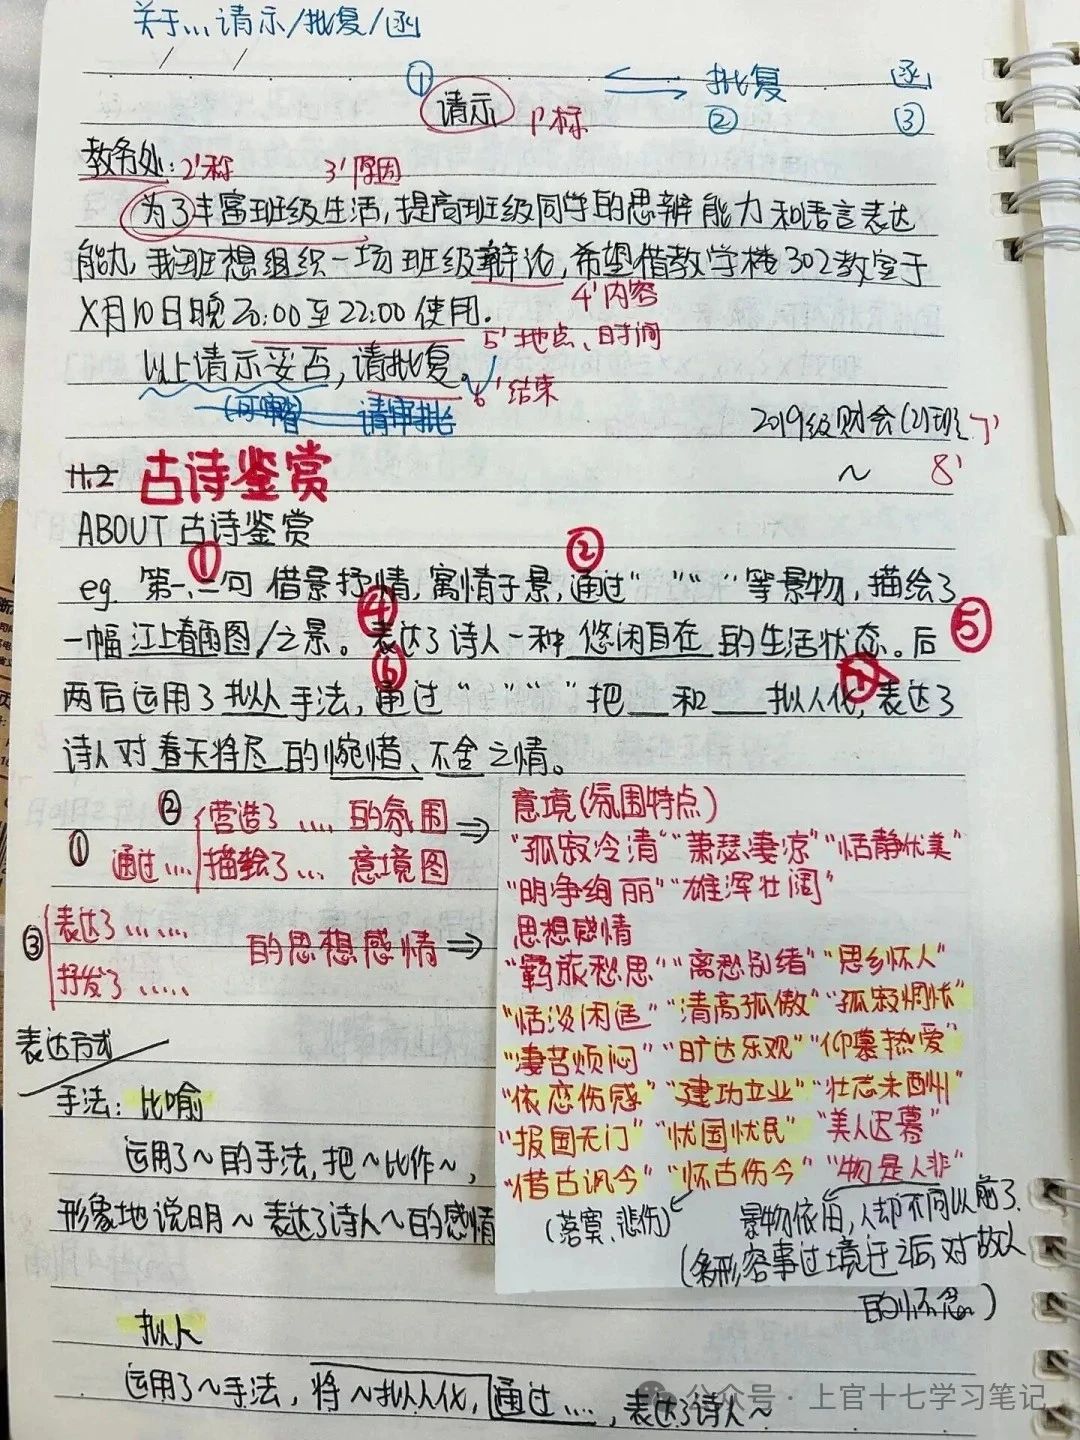 关于…请示/批复/函
① ⇌ 批复 函
请示 1'标 ② ③
教务处: 2'称 3'原因
为了丰富班级生活,提高班级同学的思辨能力和语言表达
能力,我班想组织一场班级辩论,希望借教学楼302教室于
4'内容
X月10日晚20:00至22:00使用.
5'地点、时间
以上请示妥否,请批复。
6'结束
请审批
2019级财会(2)班 7'
~ 8'
11.2 古诗鉴赏
ABOUT 古诗鉴赏
① ②
eg. 第一、二句 借景抒情,寓情于景,通过“ ”“ ”“ ”等景物,描绘了
④ ⑤
一幅 江上春雨图/之景。表达了诗人一种 悠闲自在 的生活状态。后
⑥
两后运用了 拟人 手法,通过“ ”“ ”“ ”把__和__拟人化,表达了
诗人对 春天将尽 的惋惜、不舍之情。
② 营造了…. 的氛围 ⇒
① 通过…. 描绘了… 意境图
③ 表达了…… 的思想感情 ⇒
抒发了…..
意境(氛围特点)
“孤寂冷清”“萧瑟凄凉”“恬静优美”
“明净绚丽”“雄浑壮阔”
思想感情
“羁旅愁思”“离愁别绪”“思乡怀人”
“恬淡闲适”“清高孤傲”“孤寂惆怅”
“凄苦烦闷”“旷达乐观”“仰慕热爱”
“依恋伤感”“建功立业”“壮志未酬”
“报国无门”“忧国忧民”“美人迟暮”
“借古讽今”“怀古伤今”“物是人非”
(落寞、悲伤)
景物依旧,人却不同从前了.
(多形容事过境迁之后,对故人
的怀念)
表达方式
手法: 比喻
运用了~的手法,把~比作~,
形象地说明~表达了诗人~的感情
拟人
运用了~手法,将~拟人化,通过….,表达了诗人~
公众号·上官十七学习笔记